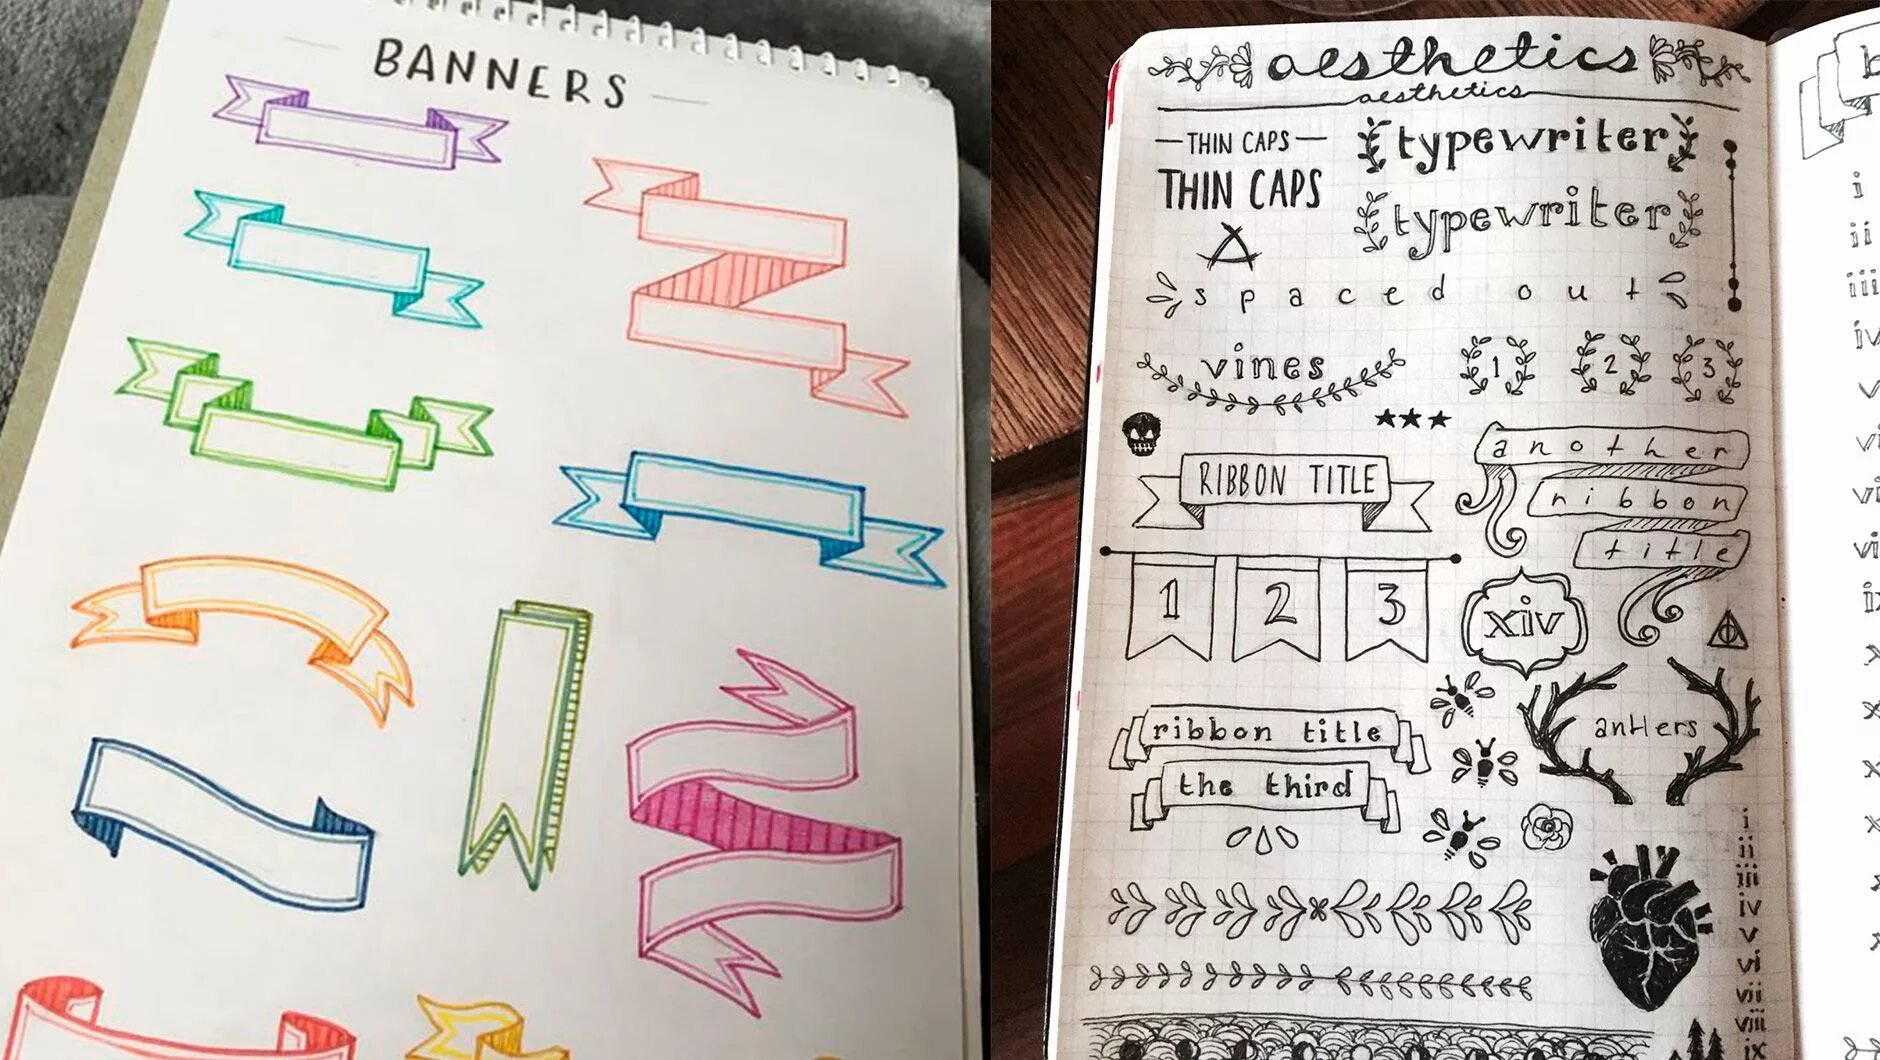 BANNERS
aesthetics
aesthetics
THIN CAPS
typewriter
THIN CAPS
typewriter
spaced out
vines
1 2 3
another
RIBBON TITLE
ribbon
title
1 2 3
xiv
antlers
ribbon title
the third
i
ii
iii
iv
v
vi
vii
viii
ix
b
i
ii
iii
iv